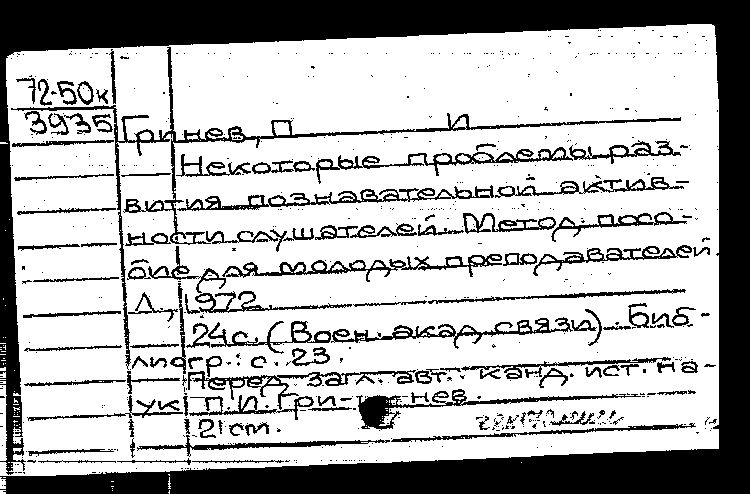 72-50к
3935
Гринев, П И
Некоторые проблемы раз-
вития познавательной актив-
ности слушателей. Метод. посо-
бие для молодых преподавателей.
Л., 1972.
24с. (Воен. акад. связи). Биб-
лиогр.: с. 23.
Перед загл. авт.: канд. ист. на-
ук П.И. Гри-нев.
21 cm.